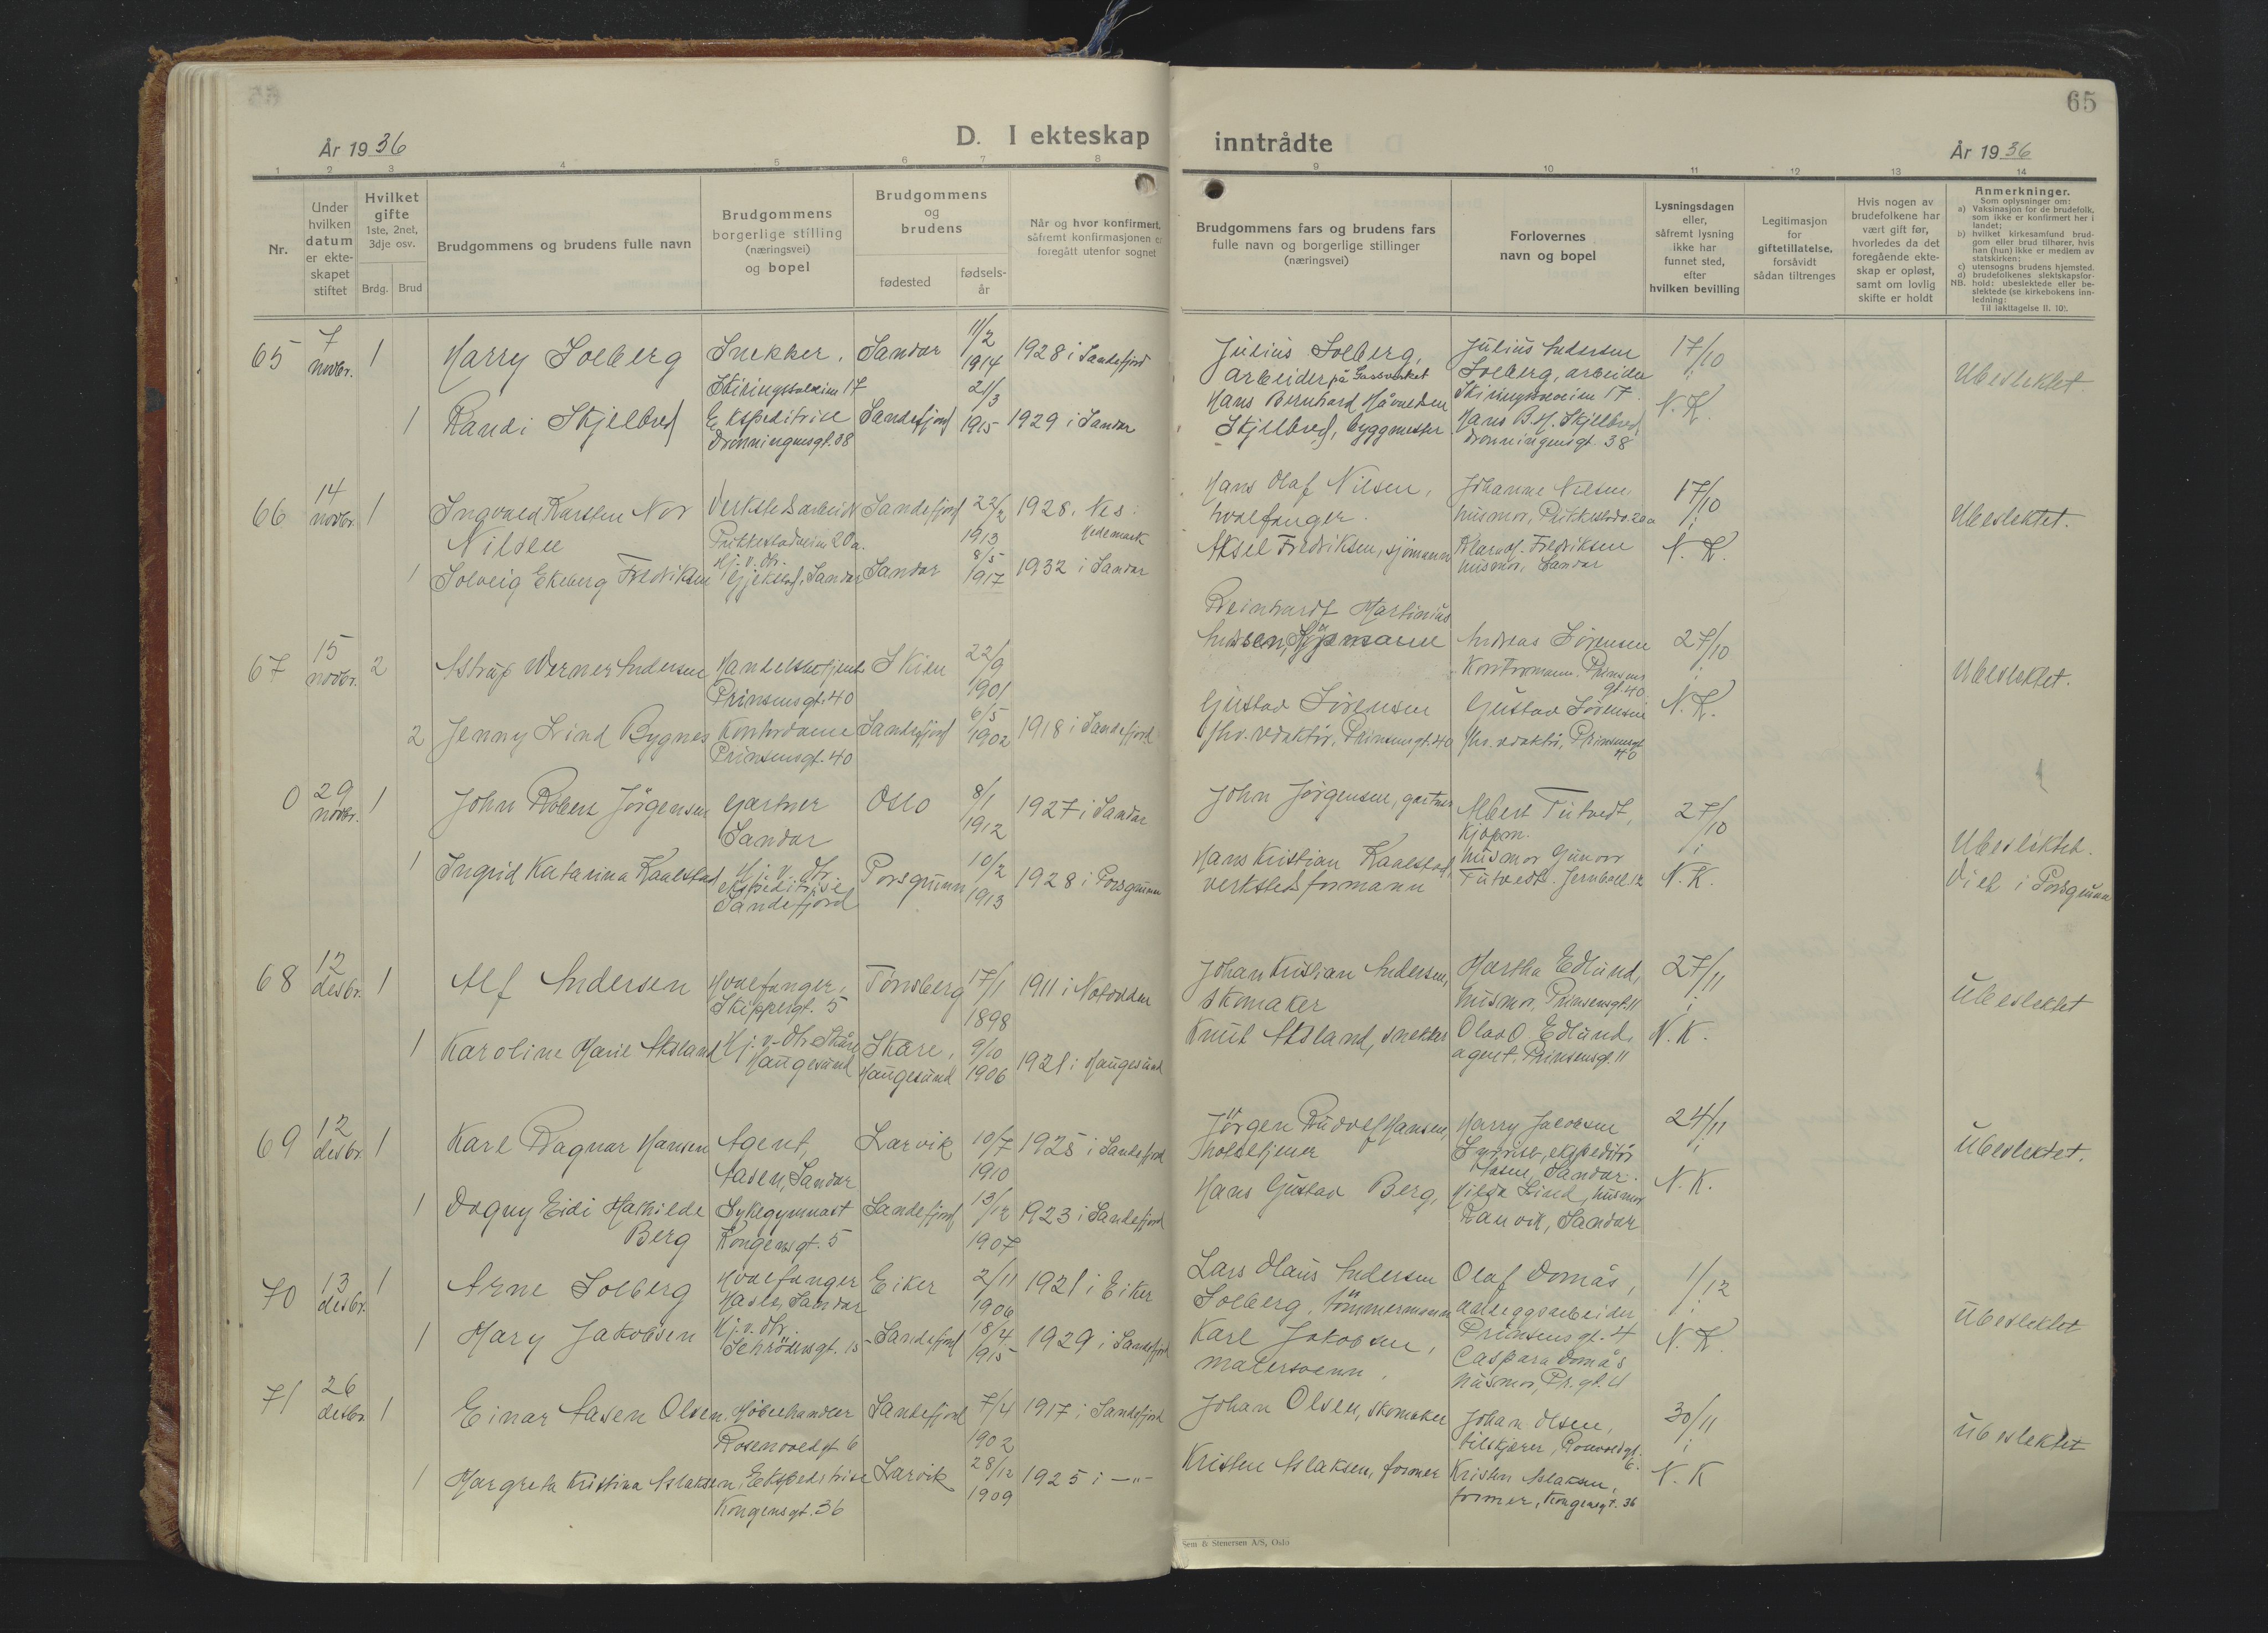 65
År 1936
D. I ekteskap inntrådte
År 1936
1 2 3 4 5 6 7 8 9 10 11 12 13 14
Nr.
Under
hvilken
datum
er ekte-
skapet
stiftet
Hvilket
gifte
1ste, 2net,
3dje osv.
Brdg. Brud
Brudgommens og brudens fulle navn
Brudgommens
borgerlige stilling
(næringsvei)
og bopel
Brudgommens
og
brudens
fødested
fødsels-
år
Når og hvor konfirmert,
såfremt konfirmasjonen er
foregått utenfor sognet
Brudgommens fars og brudens fars
fulle navn og borgerlige stillinger
(næringsvei)
Forlovernes
navn og bopel
Lysningsdagen
eller,
såfremt lysning
ikke har
funnet sted,
efter
hvilken bevilling
Legitimasjon
for
giftetillatelse,
forsåvidt
sådan tiltrenges
Hvis nogen av
brudefolkene har
vært gift før,
hvorledes da det
foregående ekte-
skap er opløst,
samt om lovlig
skifte er holdt
Anmerkninger.
Som oplysninger om:
a) Vaksinasjon for de brudefolk,
som ikke er konfirmert her i
landet;
b) hvilket kirkesamfund brud-
gom eller brud tilhører, hvis
han (hun) ikke er medlem av
statskirken;
c) utensogns brudens hjemsted.
d) brudefolkenes slektskapsfor-
NB. hold: ubeslektede eller be-
slektede (se kirkebokens inn-
ledning:
Til iakttagelse II. 10).
65 7 novbr. 1 Harry Solberg Snekker, Sandar 11/2 1914 1928 i Sandefjord
Skiringssalveien 17
1 Randi Skjelbred Ekspeditrise Sandefjord 21/3 1915 1929 i Sandar
Dronningensgt. 38
Julius Solberg, Julius Andersen 17/10
arbeider på Gassverket Solberg, arbeider
Hans Bernhard Håvaldsen Skiringssalveien 17. N. K. Ubeslektet.
Skjelbred, byggmester Hans B. H. Skjelbred
Dronningensgt. 38
66 14 novbr. 1 Ingvald Karsten Nor Verkstedsarbeid. Sandefjord 22/2 1913 1928. Nes:
Nilsen Prikkestadveien 20a. Hedemark
1 Solveig Ekeberg Fredriksen Hj. v. do. Gjekstad, Sandar Sandar 8/5 1917 1932 i Sandar
Hans Olaf Nilsen, Johanne Nilsen, 17/10
hvalfanger. husmor, 20a Ubeslektet.
Aksel Fredriksen, sjømann Fredriksen N. K.
husmor, Sandar
67 15 novbr. 2 Astrup Werner Andersen Handelsbetjent Skien 22/9 1901
Prinsensgt. 40
2 Jenny Lind Bygnes Kontordame Sandefjord 6/5 1902 1918 i Sandefjord
Prinsensgt. 40
Reinhardt Martinius
Andersen, Andreas Sørensen 27/10
Kontormann. Prinsens
gt. 40 Ubeslektet.
Gustav Sørensen Gustav Sørensen N. K.
fhv. redaktør, Prinsensgt. 40 fhv. redaktør, Prinsensgt
40
0 29 novbr. 1 John Robert Jörgensen Gartner Oslo 8/1 1912 1927 i Sandar
Sandar
1 Ingrid Katarina Kaalstad Hj. v. do. Porsgrunn 10/2 1913 1928 i Porsgrunn
ekspeditrise
Sandefjord
John Jørgensen, gartner Albert Tutvedt, 27/10
kjøpm.
Hans Kristian Kaalstad, husmor Gunvor Ubeslektet.
verkstedsformann Tutvedt. Jernbael 12 N. K. Viet i Porsgrunn
68 12 desbr. 1 Alf Andersen Hvalfanger, Tönsberg 17/1 1898 1911 i Notodden
Skippergt. 5
1 Karoline Marie Aksland Hj. v. do. Skåre Skåre, 9/10 1906 1921 i Haugesund
Haugesund Haugesund
Johan Kristian Andersen, Martha Edlund, 27/11
skomaker husmor, Prinsensgt. 11 Ubeslektet
Knut Aksland, snekker Olav O. Edlund. N. K.
agent. Prinsensgt. 11
69 12 desbr. 1 Karl Ragnar Hansen Agent, Larvik 10/7 1910 1925 i Sandefjord
Aasen, Sandar
1 Dagny Eidi Mathilde Sykegymnast Sandefjord 13/12 1907 1923 i Sandefjord
Berg Kongensgt. 5
Jörgen Rudolf Hansen, Harry Jacobsen 24/11
hotelleier ekspeditör
Aasen, Sandar. Ubeslektet.
Hans Gustav Berg, Hilda Lind, husmor N. K.
Ranvik, Sandar
70 13 desbr. 1 Arne Solberg Hvalfanger Eiker 2/11 1906 1921 i Eiker
Hasle, Sandar
1 Mary Jakobsen Hj. v. do. Sandefjord 18/4 1915 1929 i Sandefjord
Schrödersgt. 15
Lars Olaus Andersen Olaf Domås, 1/12
Solberg, tömmermann anleggsarbeider
Karl Jakobsen, Prinsensgt. 4 N. K. Ubeslektet
malersvenn. Caspara Domås
husmor, Pr. gt. 4
71 26 desbr. 1 Einar Aasen Olsen, Møbelhandler Sandefjord 7/4 1902 1917 i Sandefjord
Rosenvoldgt 6
1 Margreta Kristina Aslaksen, Ekspeditrise Larvik 28/12 1909 1925 i —"—
Kongensgt. 36
Johan Olsen, skomaker Johan Olsen, 30/11
tilskjærer, Rosenvoldgt.
6. Ubeslektet
Kristen Aslaksen, former Kristen Aslaksen, N. K
former, Kongensgt. 36
Sem & Stenersen A/S, Oslo